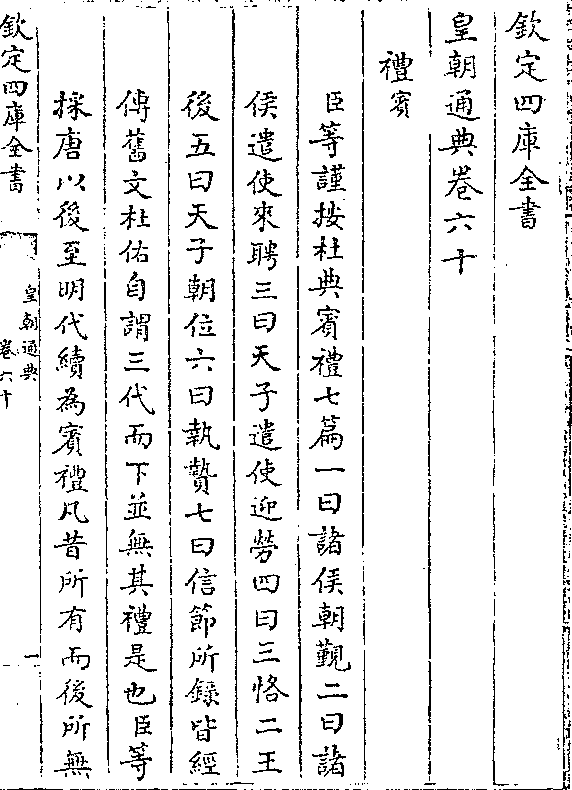 欽定四庫全書
皇朝通典卷六十
禮賓
臣等謹按杜典賓禮七篇一曰諸侯朝覲二曰諸
侯遣使來聘三曰天子遣使迎勞四曰三恪二王
後五曰天子朝位六曰執贄七曰信節所錄皆經
傳舊文杜佑自謂三代而下並無其禮是也臣等
採唐以後至明代續為賓禮凡昔所有而後所無
欽定四庫全書
皇朝通典
卷六十
一